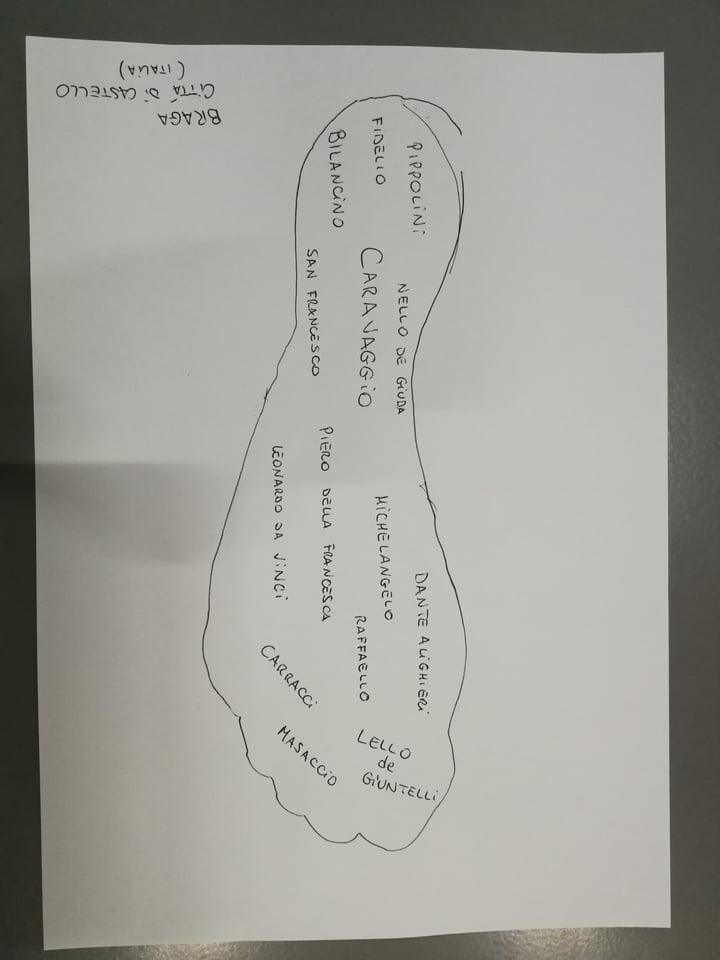 BRAGA
CITTÁ DI CASTELLO
(ITALIA)
PIPPOLINI
FIDELIO
BILANCINO
NELLO DE GIUDA
CARAVAGGIO
SAN FRANCESCO
DANTE ALIGHIERI
MICHELANGELO
RAFFAELLO
PIERO DELLA FRANCESCA
LEONARDO DA VINCI
CARRACCI
MASACCIO
LELLO
de
GIUNTELLI